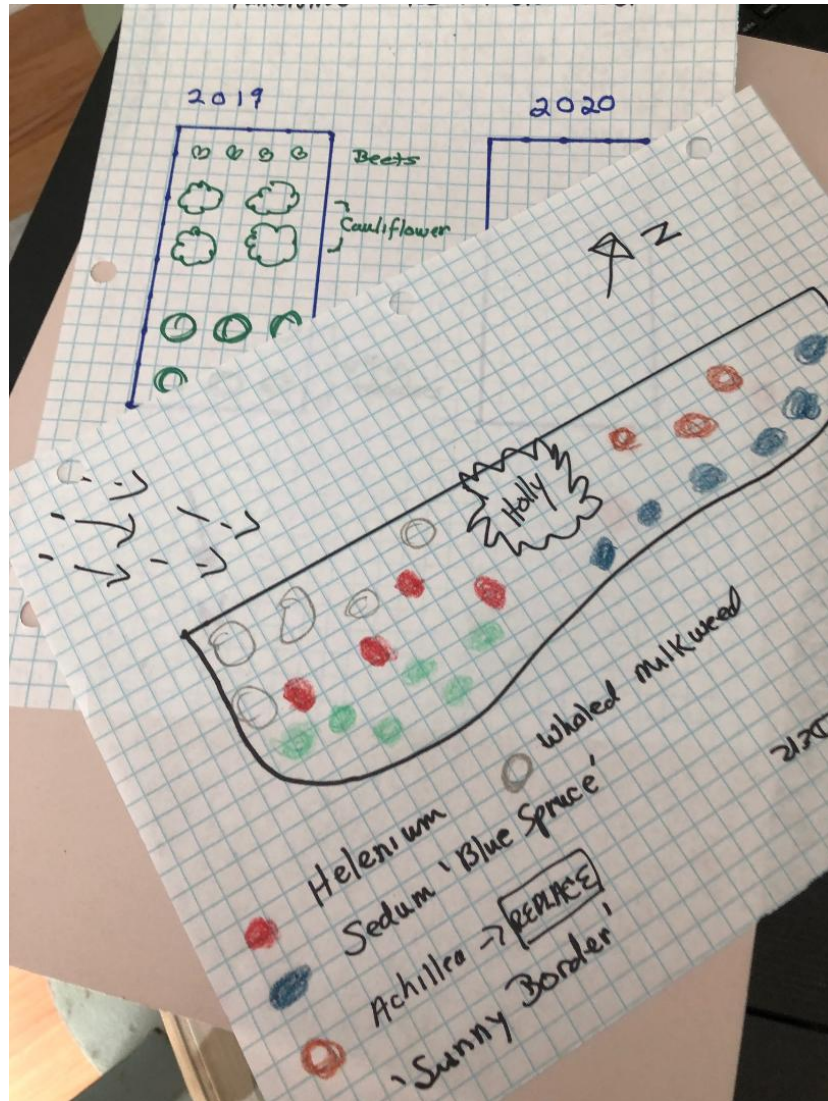 2019
2020
Beets
Cauliflower
N
Holly
Whorled Milkweed
Helenium
Sedum 'Blue Spruce'
Achillea → REPLACE
'Sunny Border'